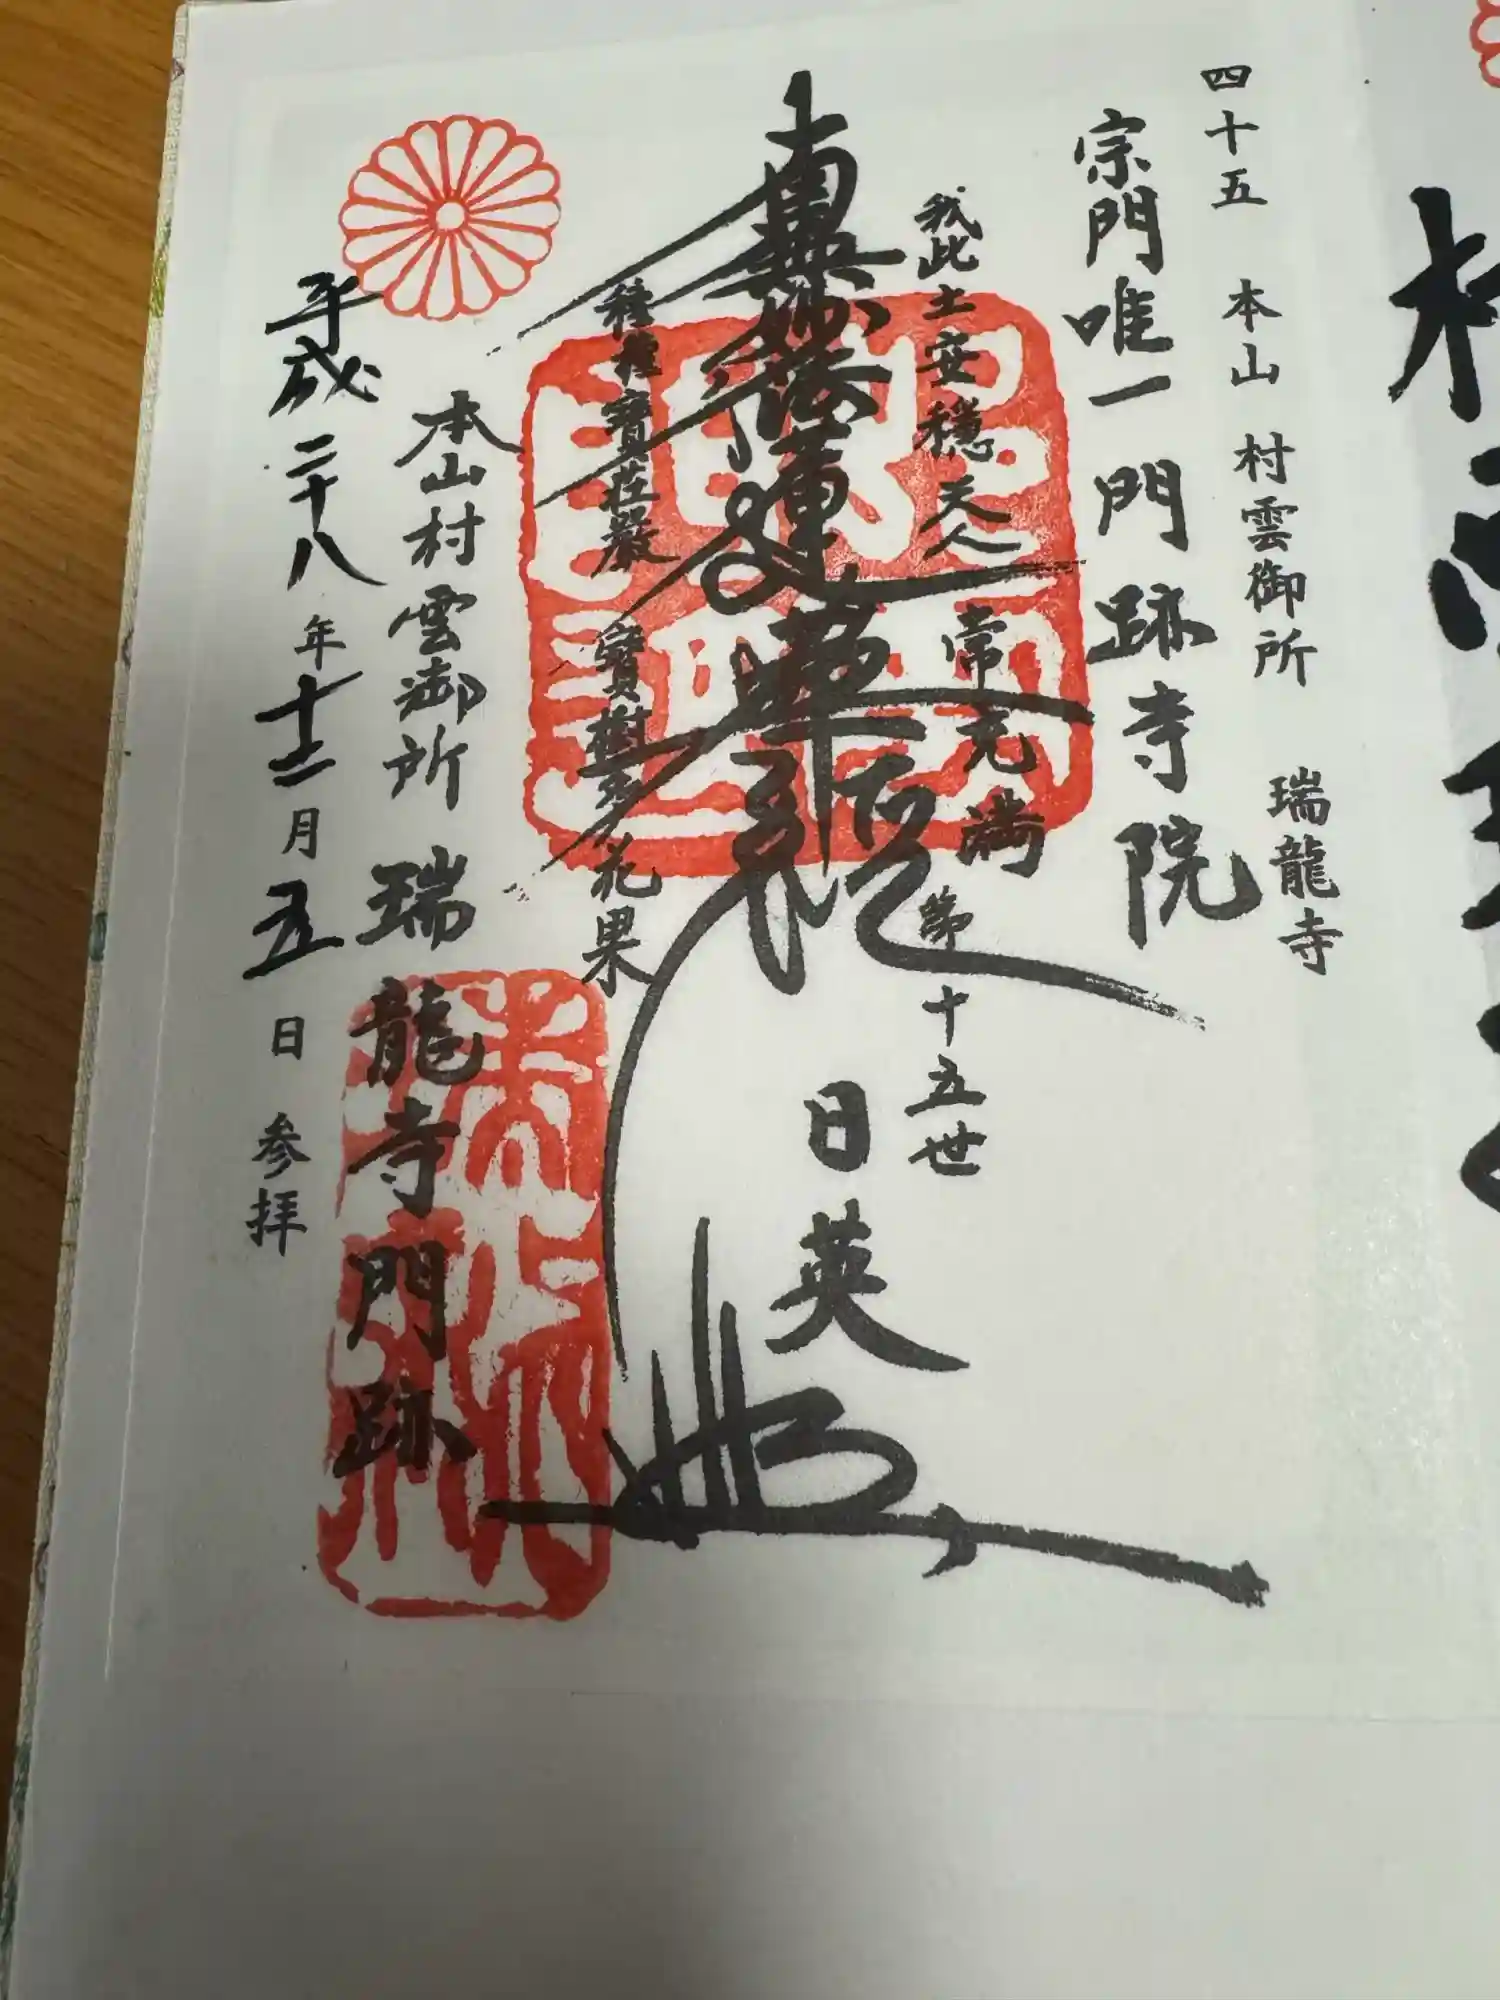 四十五　本山　村雲御所　瑞龍寺
宗門唯一門跡寺院
我此土安穏　天人常充満
南無妙法蓮華経
種種寶荘厳　寶樹多花果
第十五世
日英
本山村雲御所　瑞龍寺門跡
平成二十八年十二月五日　参拝